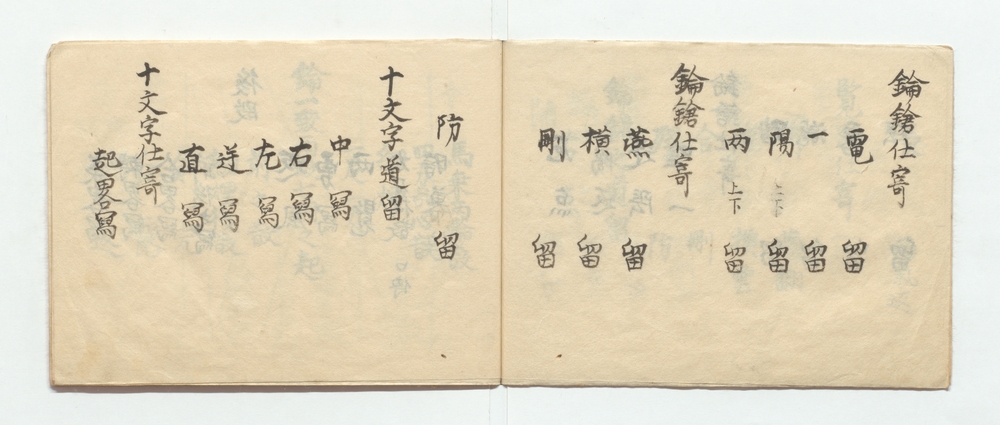 鑰鎗仕寄
電 留
一 留
陽 上下 留
両 上下 留
鑰鎗仕寄
燕 留
横 留
剛 留
防 留
十文字道留
中 寫
右 寫
左 寫
逆 寫
直 寫
十文字仕寄
起畧寫